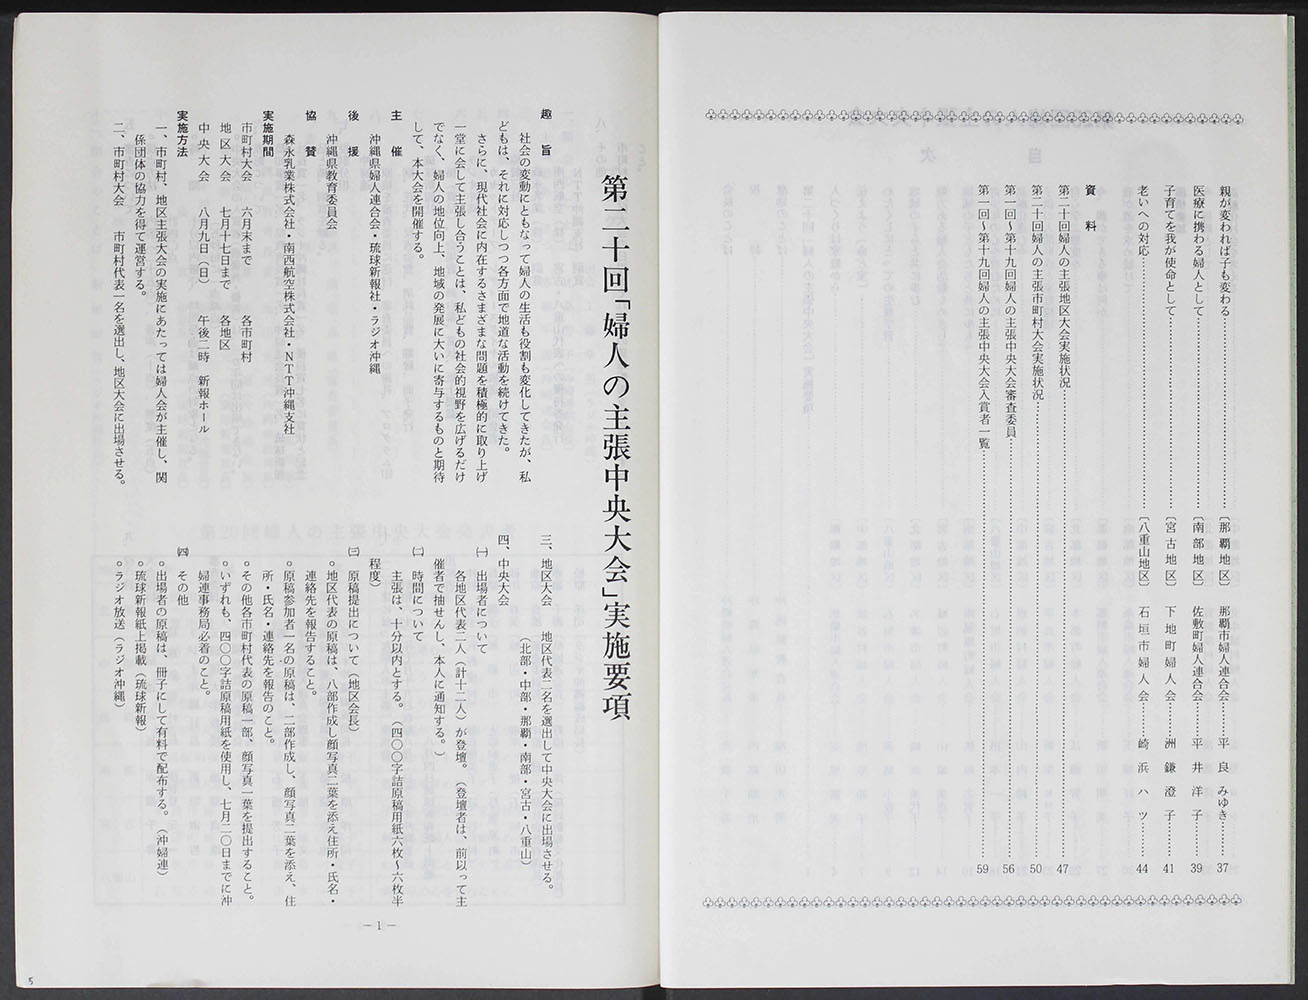 親が変われば子も変わる……〔那覇地区〕 那覇市婦人連合会……平良みゆき……37
医療に携わる婦人として……〔南部地区〕 佐敷町婦人連合会……平井洋子……39
子育てを我が使命として……〔宮古地区〕 下地町婦人会……洲鎌澄子……41
老いへの対応……〔八重山地区〕 石垣市婦人会……崎浜ハツ……44
資料
第二十回婦人の主張地区大会実施状況……47
第二十回婦人の主張市町村大会実施状況……50
第一回～第十九回婦人の主張中央大会審査委員……56
第一回～第十九回婦人の主張中央大会入賞者一覧……59
第二十回「婦人の主張中央大会」実施要項
趣旨
社会の変動にともなって婦人の生活も役割も変化してきたが、私
どもは、それに対応しつつ各方面で地道な活動を続けてきた。
さらに、現代社会に内在するさまざまな問題を積極的に取り上げ
一堂に会して主張し合うことは、私どもの社会的視野を広げるだけ
でなく、婦人の地位向上、地域の発展に大いに寄与するものと期待
して、本大会を開催する。
主催
沖縄県婦人連合会・琉球新報社・ラジオ沖縄
後援
沖縄県教育委員会
協賛
森永乳業株式会社・南西航空株式会社・NTT沖縄支社
実施期間
市町村大会 六月末まで 各市町村
地区大会 七月十七日まで 各地区
中央大会 八月九日（日） 午後二時 新報ホール
実施方法
一、市町村、地区主張大会の実施にあたっては婦人会が主催し、関
係団体の協力を得て運営する。
二、市町村大会 市町村代表一名を選出し、地区大会に出場させる。
三、地区大会 地区代表二名を選出して中央大会に出場させる。
（北部・中部・那覇・南部・宮古・八重山）
四、中央大会
㈠ 出場者について
各地区代表二人（計十二人）が登壇。（登壇者は、前以って主
催者で抽せんし、本人に通知する。）
㈡ 時間について
主張は、十分以内とする。（四〇〇字詰原稿用紙六枚～六枚半
程度）
㈢ 原稿提出について（地区会長）
○地区代表の原稿は、八部作成し顔写真二葉を添え住所・氏名・
連絡先を報告すること。
○原稿参加者一名の原稿は、二部作成し、顔写真二葉を添え、住
所・氏名・連絡先を報告のこと。
○その他各市町村代表の原稿一部、顔写真一葉を提出すること。
○いずれも、四〇〇字詰原稿用紙を使用し、七月二〇日までに沖
婦連事務局必着のこと。
㈣ その他
○出場者の原稿は、冊子にして有料で配布する。（沖婦連）
○琉球新報紙上掲載（琉球新報）
○ラジオ放送（ラジオ沖縄）
―1―
5